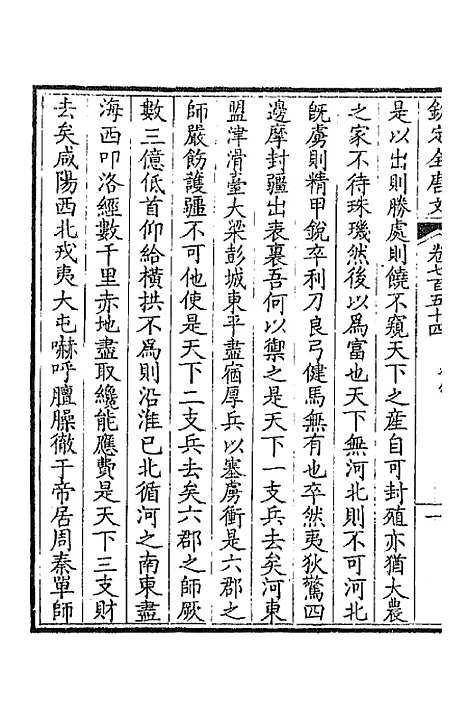 欽定全唐文 卷七百五十四 一
是以出則勝處則饒不窺天下之産自可封殖亦猶大農
之家不待珠璣然後以爲富也天下無河北則不可河北
旣虜則精甲銳卒利刀良弓健馬無有也卒然夷狄驚四
邊摩封疆出表裏吾何以禦之是天下一支兵去矣河東
盟津滑臺大梁彭城東平盡宿厚兵以塞虜衝是六郡之
師嚴飭護疆不可他使是天下二支兵去矣六郡之師厥
數三億低首仰給橫拱不爲則沿淮已北循河之南東盡
海西叩洛經數千里赤地盡取纔能應費是天下三支財
去矣咸陽西北戎夷大屯嚇呼膻臊徹于帝居周秦單師